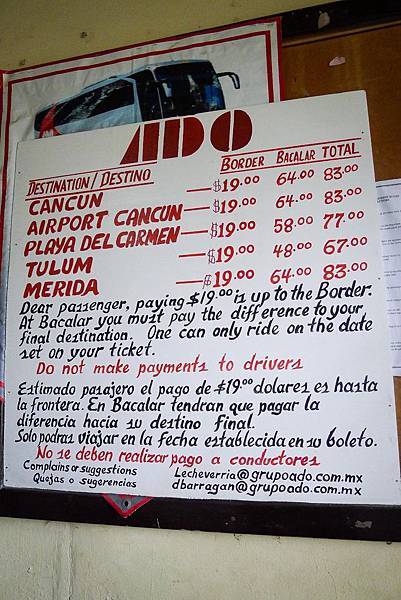 ADO
DESTINATION/DESTINO BORDER BACALAR TOTAL
CANCUN —$19.00 64.00 83.00
AIRPORT CANCUN —$19.00 64.00 83.00
PLAYA DEL CARMEN —$19.00 58.00 77.00
TULUM —$19.00 48.00 67.00
MERIDA —$19.00 64.00 83.00
Dear passenger, paying $19.00 is up to the Border.
At Bacalar you must pay the difference to your
final destination. One can only ride on the date
set on your ticket.
Do not make payments to drivers
Estimado pasajero el pago de $19.00 dolares es hasta
la frontera. En Bacalar tendran que pagar la
diferencia hacia su destino final.
Solo podras viajar en la fecha establecida en su boleto.
No se deben realizar pago a conductores
Complains or suggestions Lecheverria@grupoado.com.mx
Quejas o sugerencias dbarragan@grupoado.com.mx